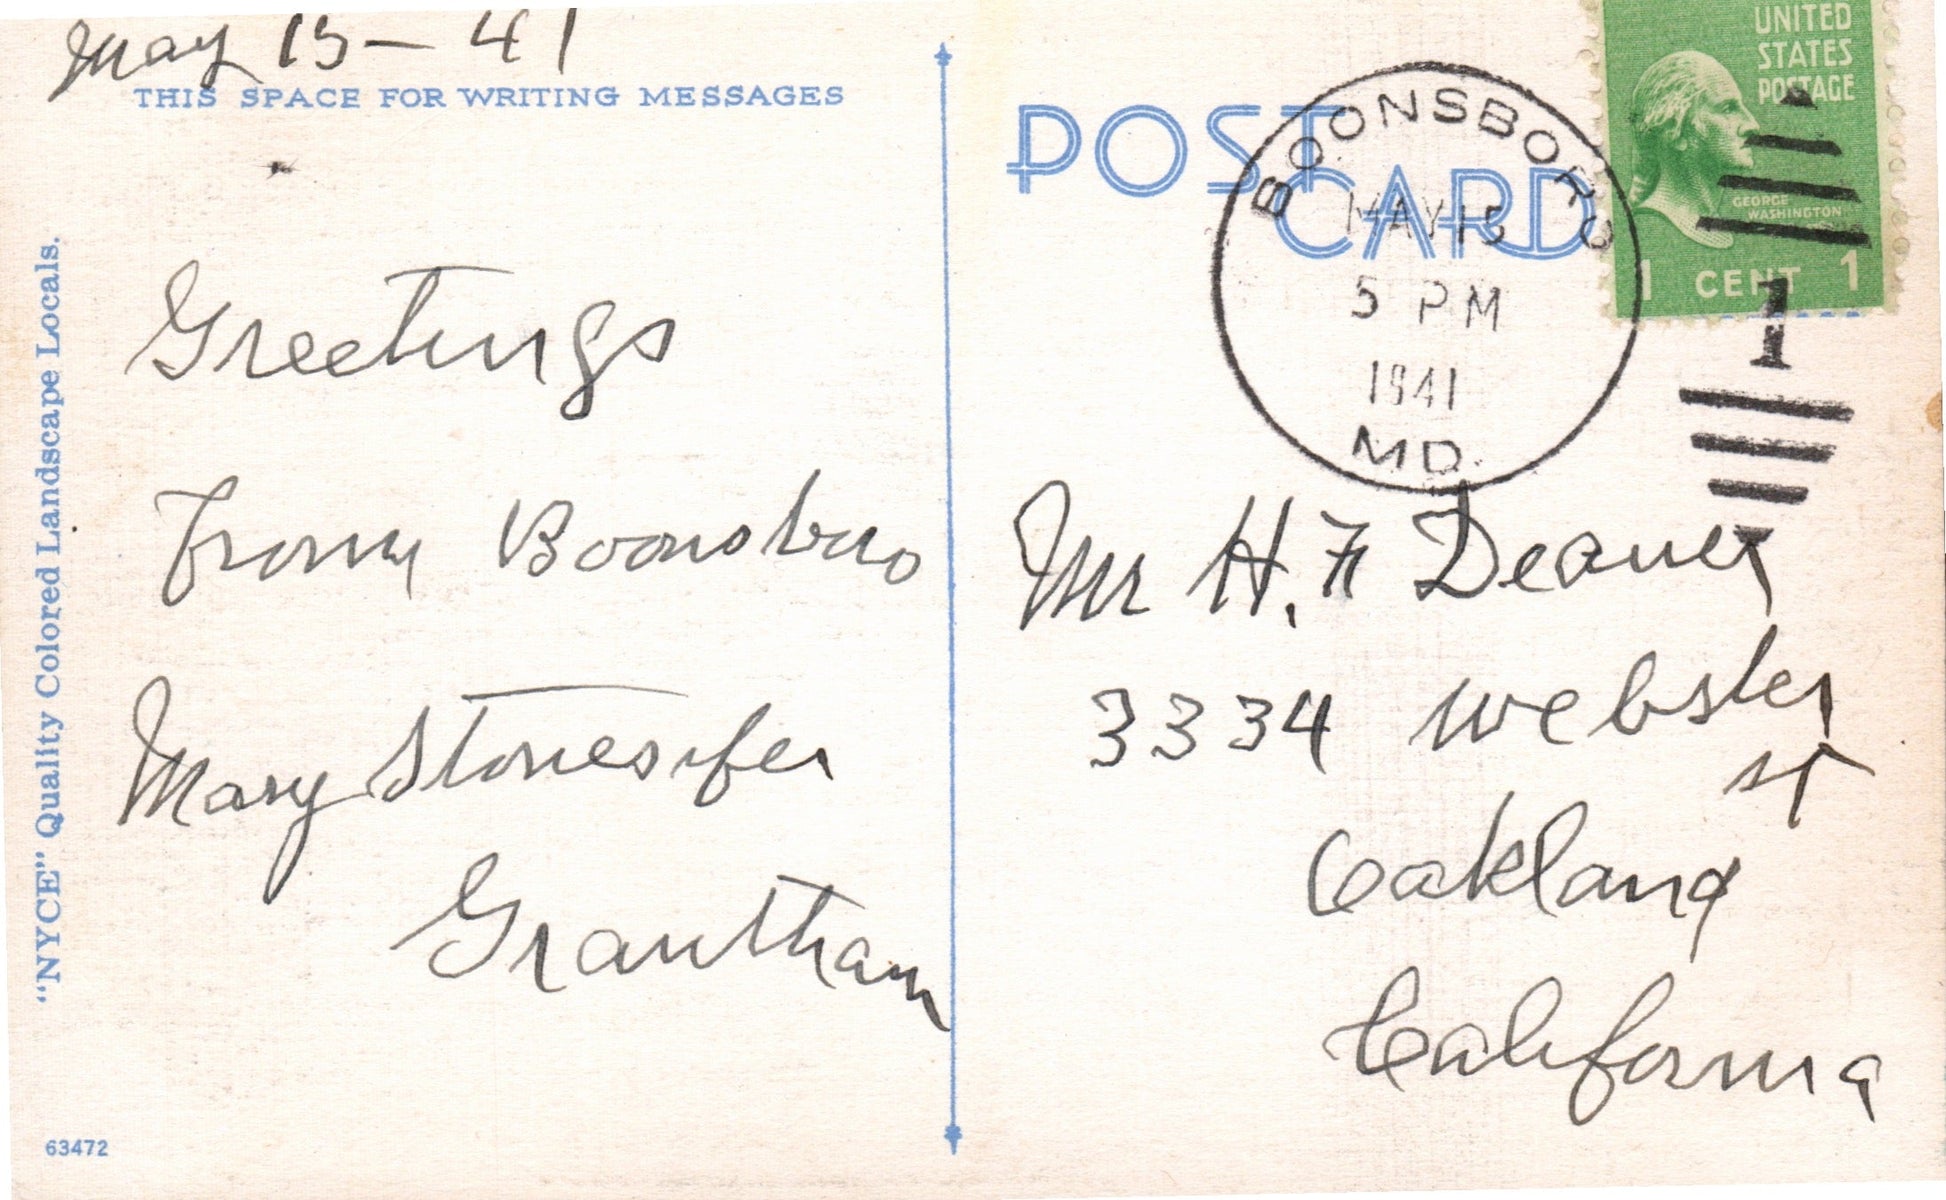 May 15 - 41
THIS SPACE FOR WRITING MESSAGES
Greetings
From Boonsboro
Mary Stonesifer
Grantham
"NYCE" Quality Colored Landscape Locals.
63472
POST
CARD
BOONSBORO
MAY 15
5 PM
1941
MD.
UNITED
STATES
POSTAGE
GEORGE
WASHINGTON
1 CENT 1
1
Mr H. F Deaner
3334 Webster
st
Oakland
California